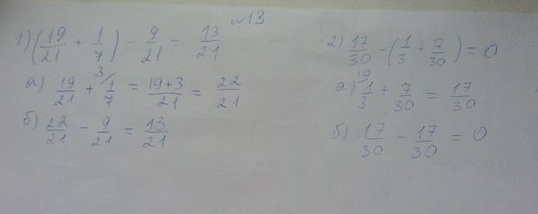 №13
1) (19/21 + 1/7) - 9/21 = 13/21
а) 19/21 + 3/ 1/7 = 19+3/21 = 22/21
б) 22/21 - 9/21 = 13/21
2) 17/30 - (1/3 + 7/30) = 0
а) 10/ 1/3 + 7/30 = 17/30
б) 17/30 - 17/30 = 0